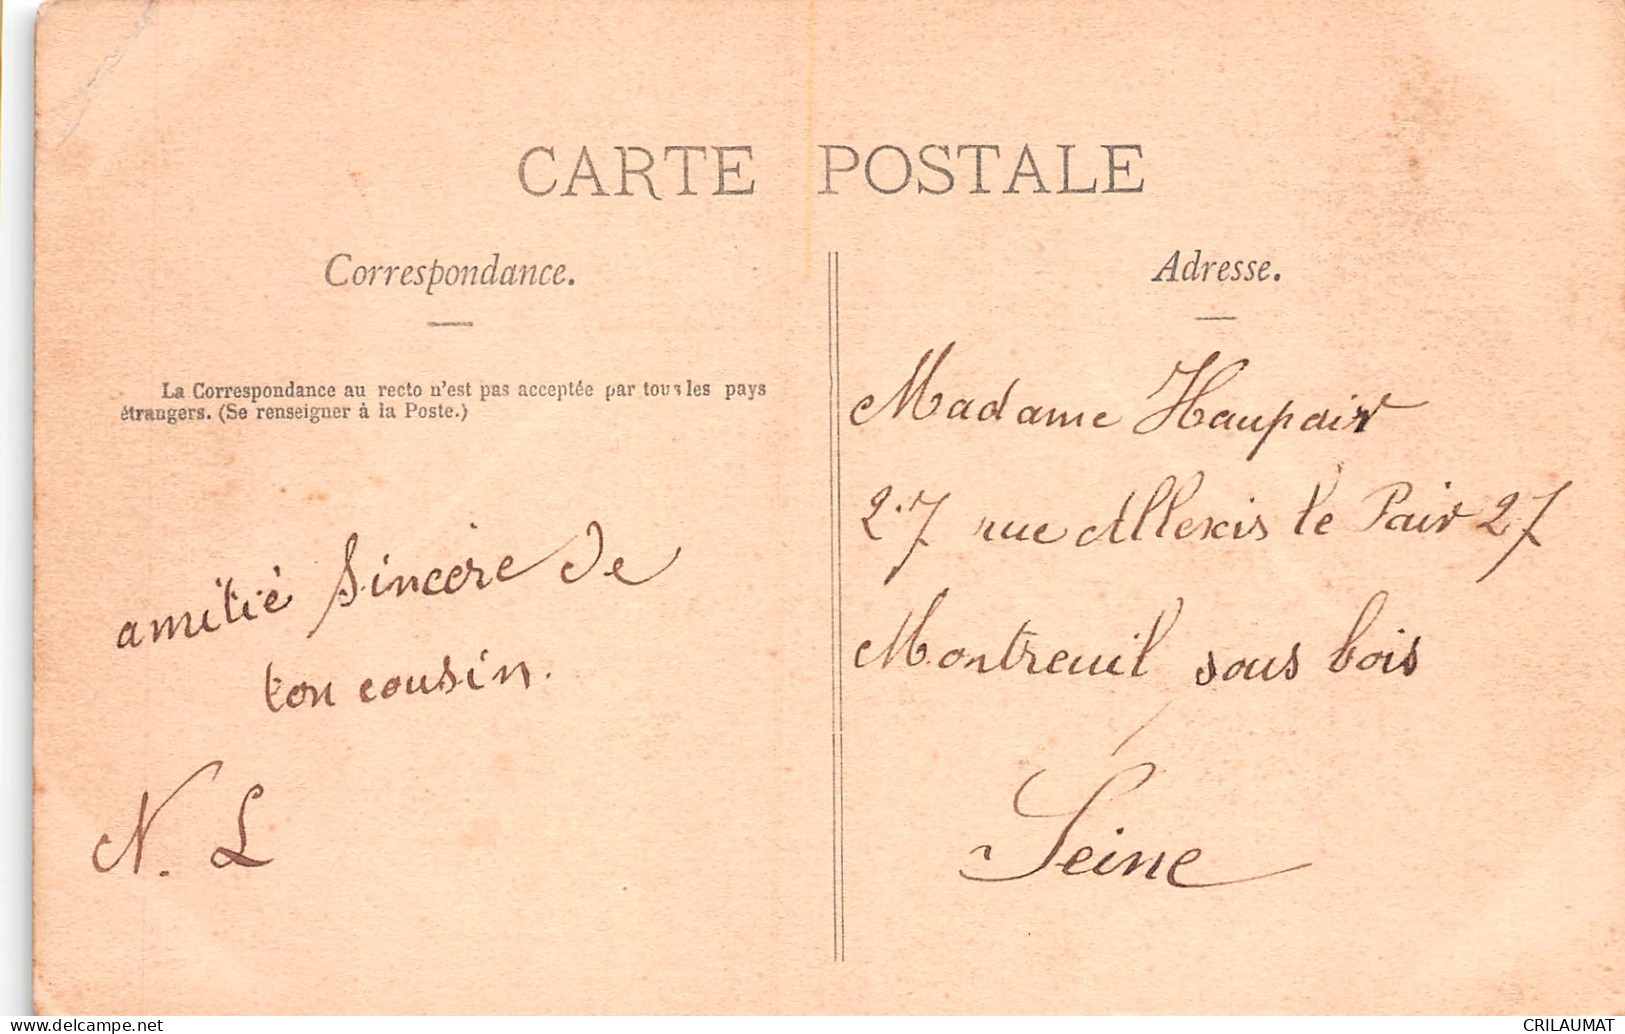 CARTE POSTALE
Correspondance.
La Correspondance au recto n'est pas acceptée par tous les pays
étrangers. (Se renseigner à la Poste.)
amitié Sincère de
ton cousin.
N. L
Adresse.
Madame Haupair
27 rue Allexis le Pair 27
Montreuil sous bois
Seine
www.delcampe.net
CRILAUMAT